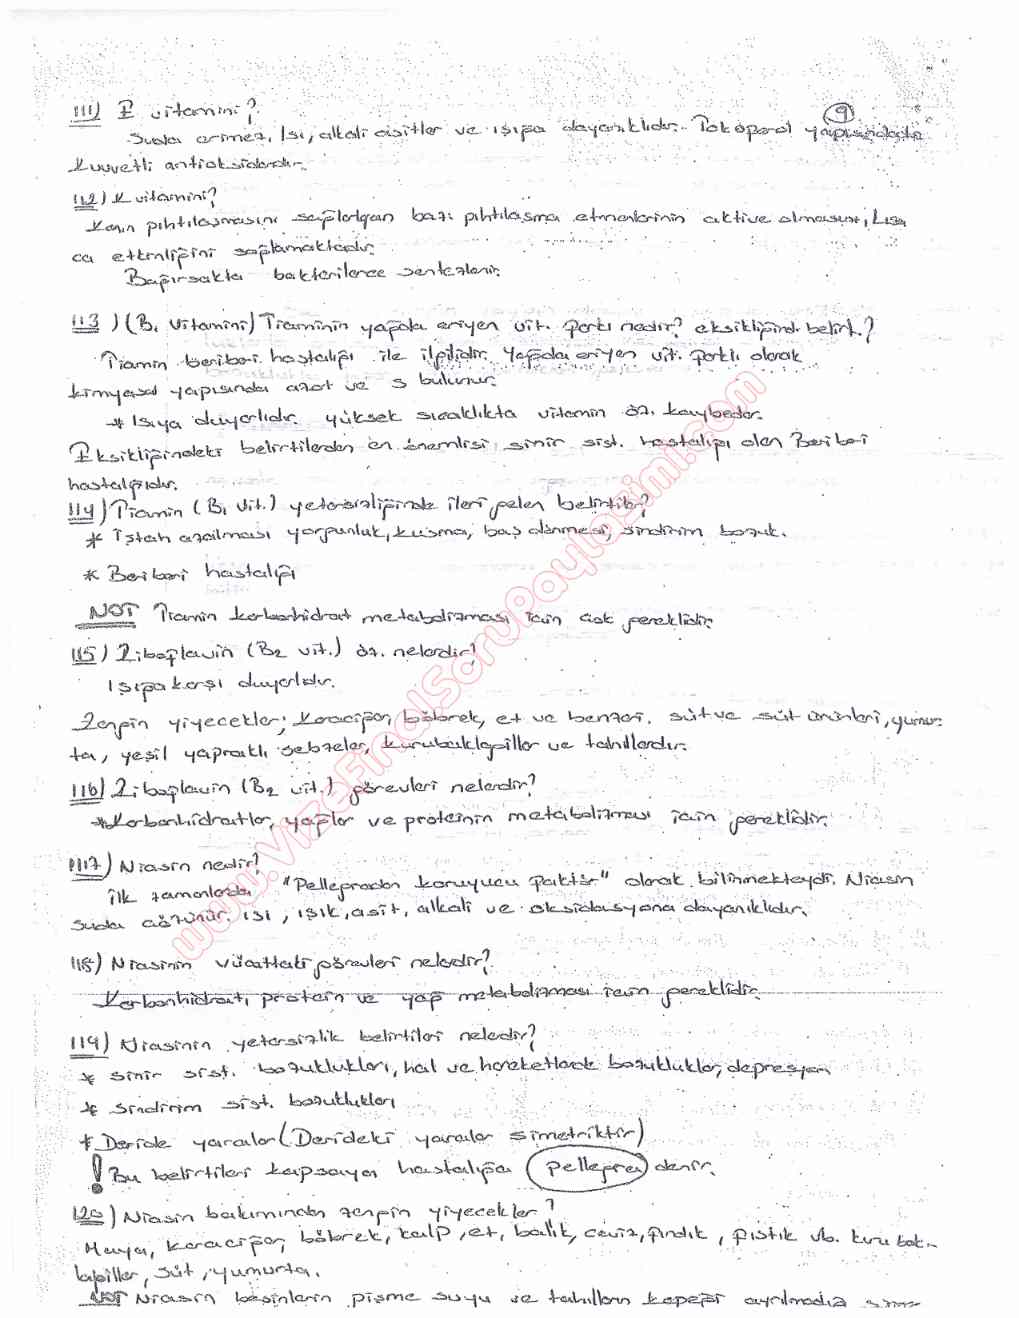 9
111) E vitamini?
Suda erimez, Isı, alkali asitler ve ışığa dayanıklıdır. Tokoferol yapısındadır
Kuvvetli antioksidandır.
112) K vitamini?
Kanın pıhtılaşmasını sağlayan bazı pıhtılaşma etmenlerinin aktive olmasını, kısa
ca etkenliğini sağlamaktadır.
Bağırsakta bakterilerce sentezlenir.
113) (B1 Vitamini) Tiaminin yağda eriyen vit. farkı nedir? eksikliğinde belirt.?
Tiamin beriberi hastalığı ile ilgilidir. Yağda eriyen vit. farklı olarak
kimyasal yapısında azot ve S bulunur.
* Isıya duyarlıdır. yüksek sıcaklıkta vitamin öz. kaybeder.
Eksikliğindeki belirtilerden en önemlisi sinir sist. hastalığı olan Beriberi
hastalığıdır.
114) Tiamin (B1 Vit.) yetersizliğinde ileri gelen belirtiler?
* İştah azalması yorgunluk, kusma, baş dönmesi, sindirim bozuk.
* Beriberi hastalığı
NOT Tiamin karbonhidrat metabolizması için çok gereklidir.
115) Riboflavin (B2 vit.) öz. nelerdir?
Işığa karşı duyarlıdır.
Zengin yiyecekler; Karaciğer, böbrek, et ve benzeri. süt ve süt ürünleri, yumur
ta, yeşil yapraklı sebzeler, kurubaklagiller ve tahıllardır.
116) Riboflavin (B2 vit.) görevleri nelerdir?
* Karbonhidratlar, yağlar ve proteinin metabolizması için gereklidir.
117) Niasin nedir?
İlk zamanlarda "Pellegradan koruyucu faktör" olarak bilinmekteydi. Niasin
suda çözünür. ısı, ışık, asit, alkali ve oksidasyona dayanıklıdır.
118) Niasinin vücuttaki görevleri nelerdir?
Karbonhidrat, protein ve yağ metabolizması için gereklidir.
119) Niasinin yetersizlik belirtileri nelerdir?
* sinir sist. bozuklukları, hal ve hareketlerde bozukluklar, depresyon
* Sindirim sist. bozuklukları
* Deride yaralar (Derideki yaralar simetriktir)
! Bu belirtileri kapsayan hastalığa pellegra denir.
120) Niasin bakımından zengin yiyecekler?
Maya, karaciğer, böbrek, kalp, et, balık, ceviz, fındık, fıstık vb. kuru bak-
lagiller, süt, yumurta.
NOT Niasin besinlerin pişme suyu ve tahılların kepeği ayrılmadığı
www.VizeFinalSoruPaylasimi.com